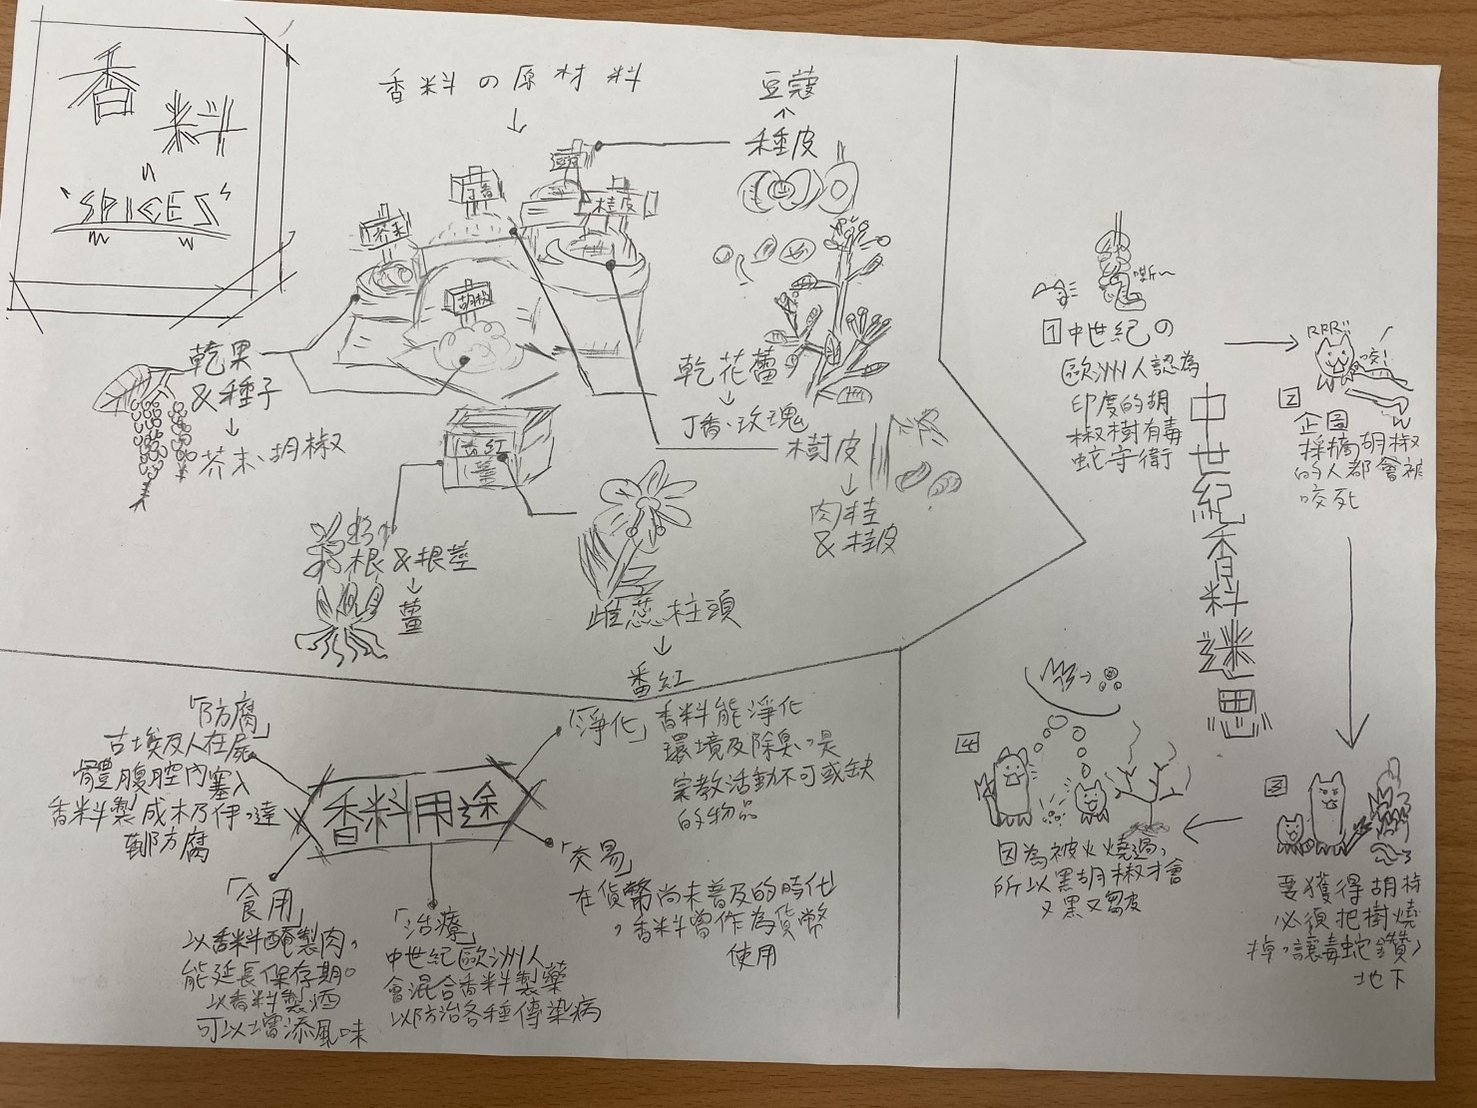 香
料
"SPICES"
香料の原材料
豆蔻
種皮
丁香
桂皮
芥末
胡椒
乾果
&種子
芥末、胡椒
乾花蕾
丁香、玫瑰
樹皮
肉桂
&桂皮
番紅
薑
根&根莖
薑
雌蕊柱頭
番紅
香料用途
「防腐」
古埃及人在屍
體腹腔內塞入
香料製成木乃伊,達
到防腐
「淨化」
香料能淨化
環境及除臭,是
宗教活動不可或缺
的物品
「交易」
在貨幣尚未普及的時代
,香料曾作為貨幣
使用
「食用」
以香料醃製肉,
能延長保存期。
以香料製酒
可以增添風味
「治療」
中世紀歐洲人
會混合香料製藥
以防治各種傳染病
中世紀香料迷思
嘶~
1 中世紀の
歐洲人認為
印度的胡
椒樹有毒
蛇守衛
RRR!!
咬!
2 企圖
採摘胡椒
的人都會被
咬死
3
要獲得胡椒
必須把樹燒
掉,讓毒蛇鑽入
地下
4
因為被火燒過,
所以黑胡椒才會
又黑又皺皮